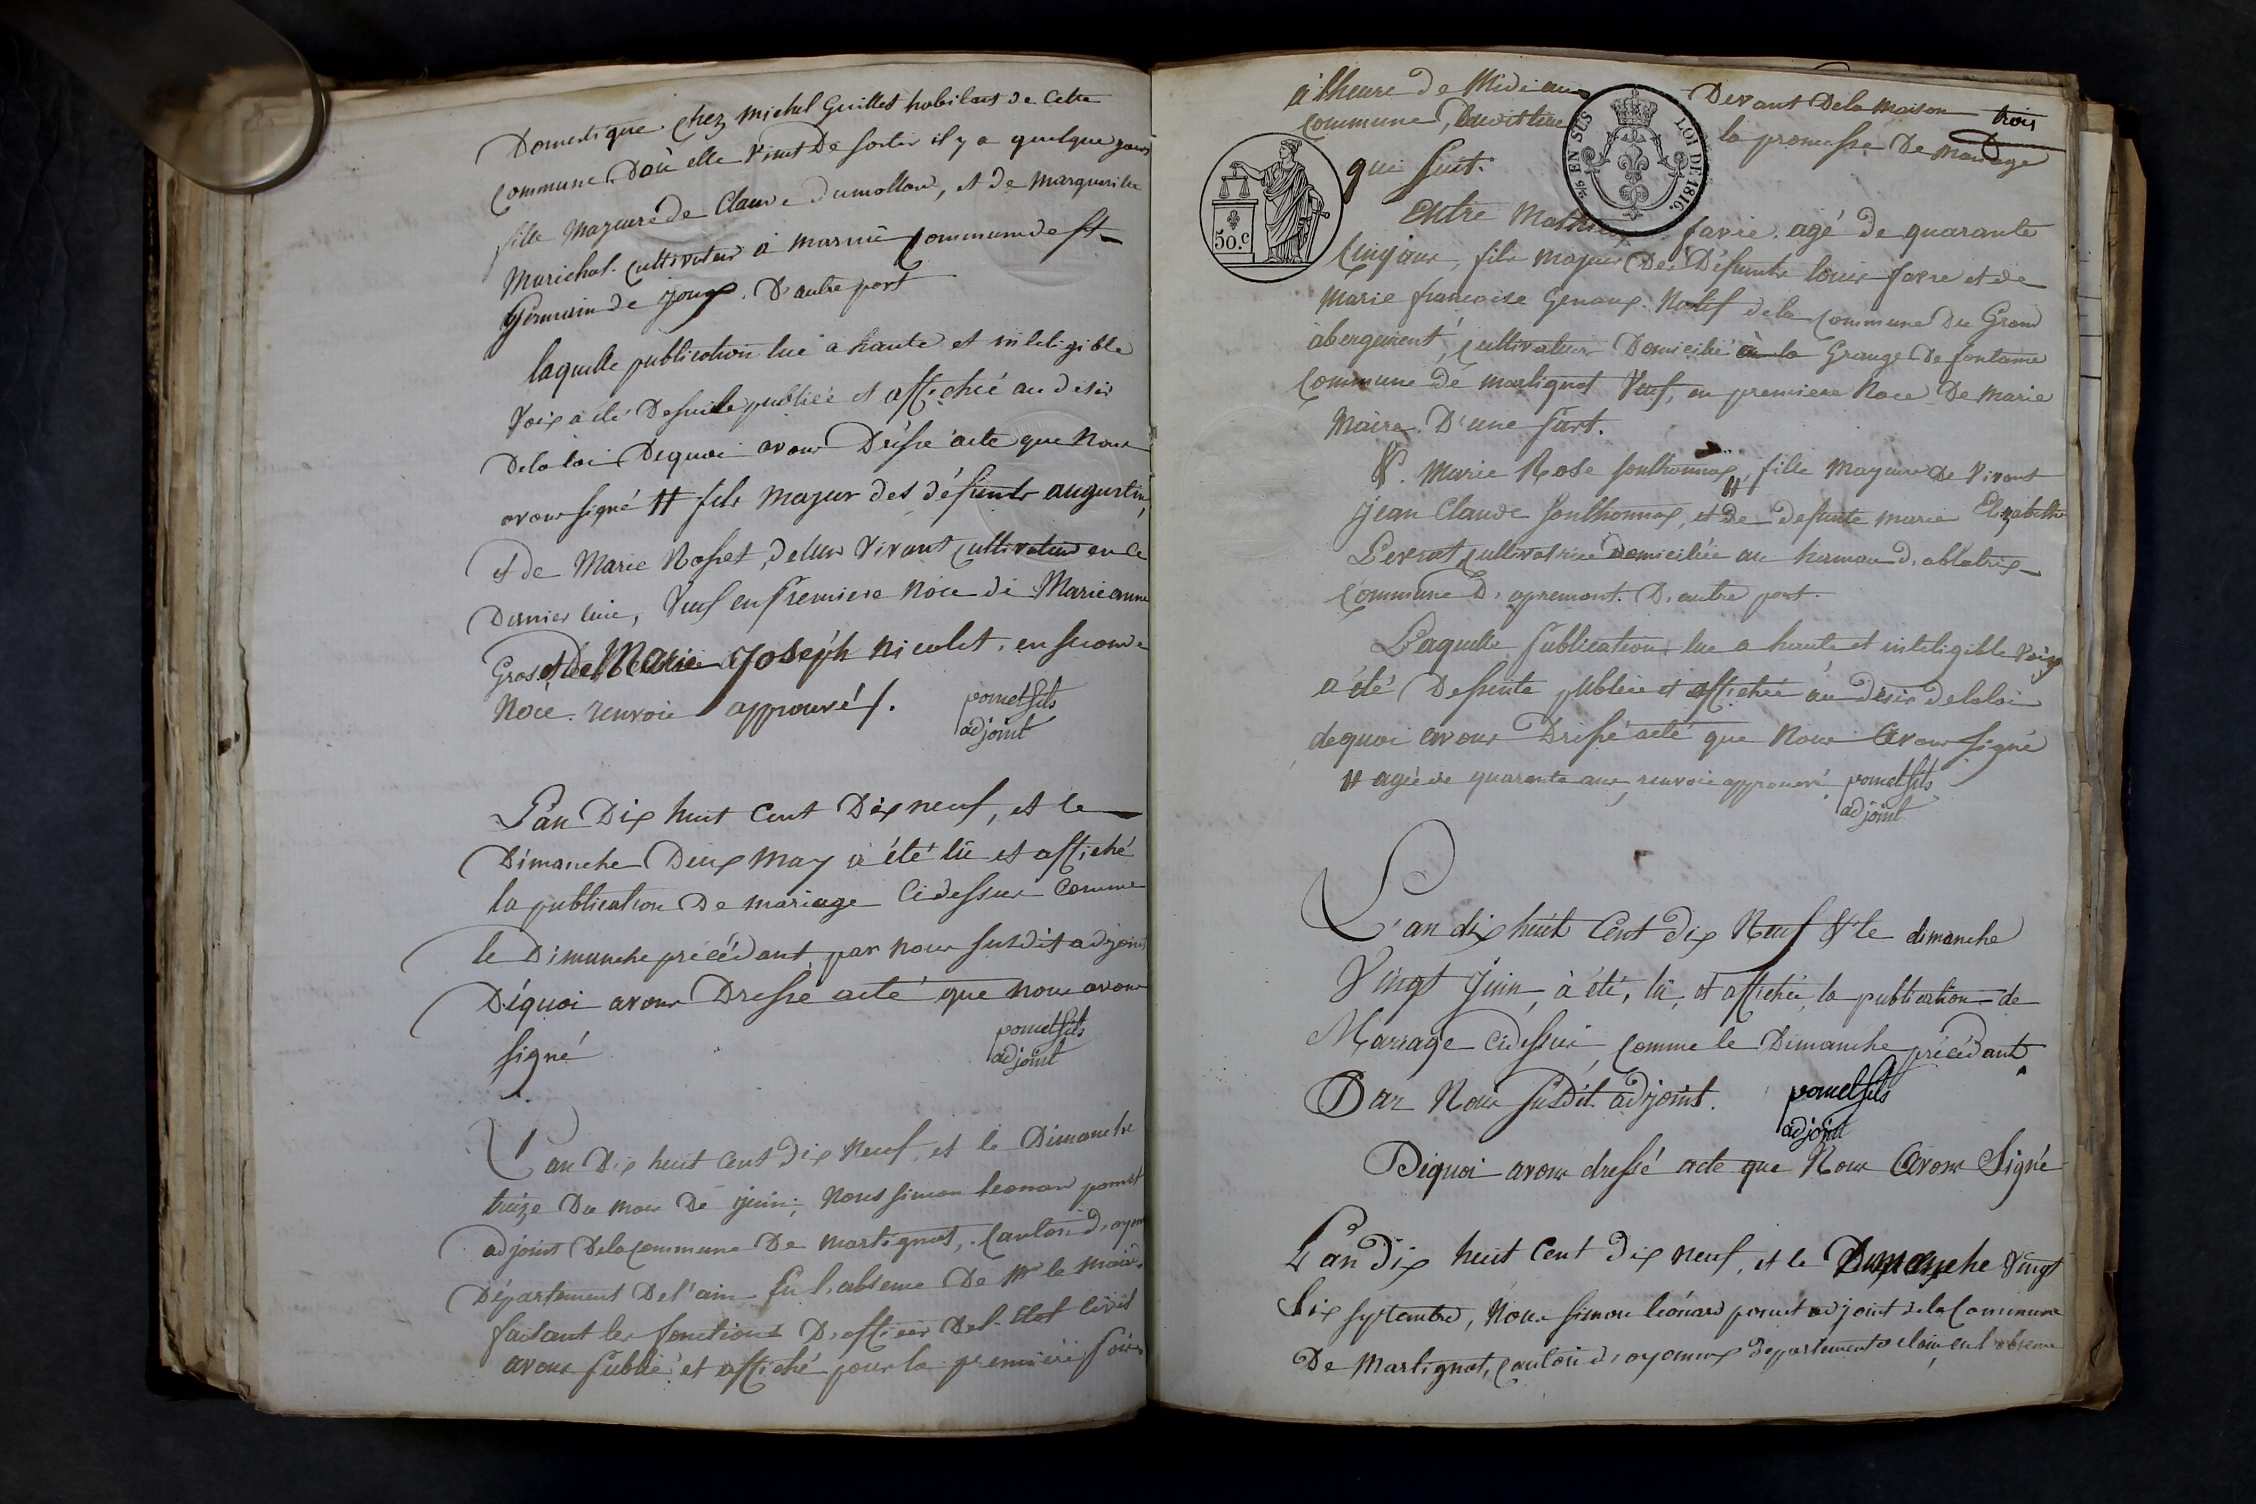 Domestique chez Michel Guillet habitant de cette
commune, Doù elle vient De sortir il y a quelque jours
fille majeure de Claude Dumollard, et de Marguerite
Marichal cultivateur à commune de St
Germain de Joux. D'autre part
laquelle publication lue à haute et inteligible
Voix a été De suite publiée et affichée au desir
De la loi De quoi avons Dressé acte que Nous
avons signé # fils majeur des défunts augustin
et de Marie Rosset, de leur Vivant cultivateur en ce
Dernier lieu, Veuf en Premiere Noce de Marie anne
Gros et de Marie Joseph Nicolet, en seconde
Noce. renvoie approuvé.
pomet fils
adjoint
L'an Dix huit Cent Dix neuf, et le
Dimanche Deux May a été lû et affiché
la publication De mariage Cidessus Comme
le Dimanche précédant par nous susdit adjoint
Déquoi avons Dressé acté que nous avons
signé
pomet fils
adjoint
L'an Dix huit Cent Dix Neuf, et le Dimanche
treize Du mois De juin, Nous simon leonard pomet
adjoint De la commune De martignat, Canton d'oyonnax
Département De l'ain En l'absence De Mr le Maire
faisant les fonctions D'officier De l'Etat Civil
avons publié et affiché pour la premiere fois
à l'heure de Midi au Devant De la maison
trois
commune, la promesse De mariage
qui suit.
50.c
EN SUS
LOI DE 1816.
Entre Mathieu favre agé de quarante
Cinq ans, fils majeur De Défunts louis favre et de
Marie françoise Genoux Natif de la Commune Du Grand
abergement, cultivateur Domicilié à la Grange De fontaine
Commune de martignat Veuf, en premiere Noce De Marie
Maire D'une part.
Et Marie Rose Sonthonnax, fille Majeure De Vivant
#
jean Claude Sonthonnax, et De defunte marie Elizabeth
Levrat cultivatrice Domiciliée au hameau d'
Commune D'apremont. D'autre part.
Laquelle Publication lue a haute et inteligible Voix
a été De suite publiée et affichée au Désir de la loi
de quoi avons Dressé acté que Nous Avons signé
# agée de quarante ans, renvoie approuvé.
pomet fils
adjoint
L'an dix huit Cent dix Neuf & le dimanche
Vingt Juin, à été, lû, et affichée, la publication de
Mariage Cidessus, Comme le Dimanche précédant
Par Nous susdit adjoint.
pomet fils
adjoint
Déquoi avons dressé acte que Nous Avons Signé
L'an Dix huit Cent Dix neuf, et le Dimanche Vingt
Six septembre, Nous simon léonard pomet adjoint de la Commune
De Martignat, canton d'oyonnax département de l'ain en l'absence